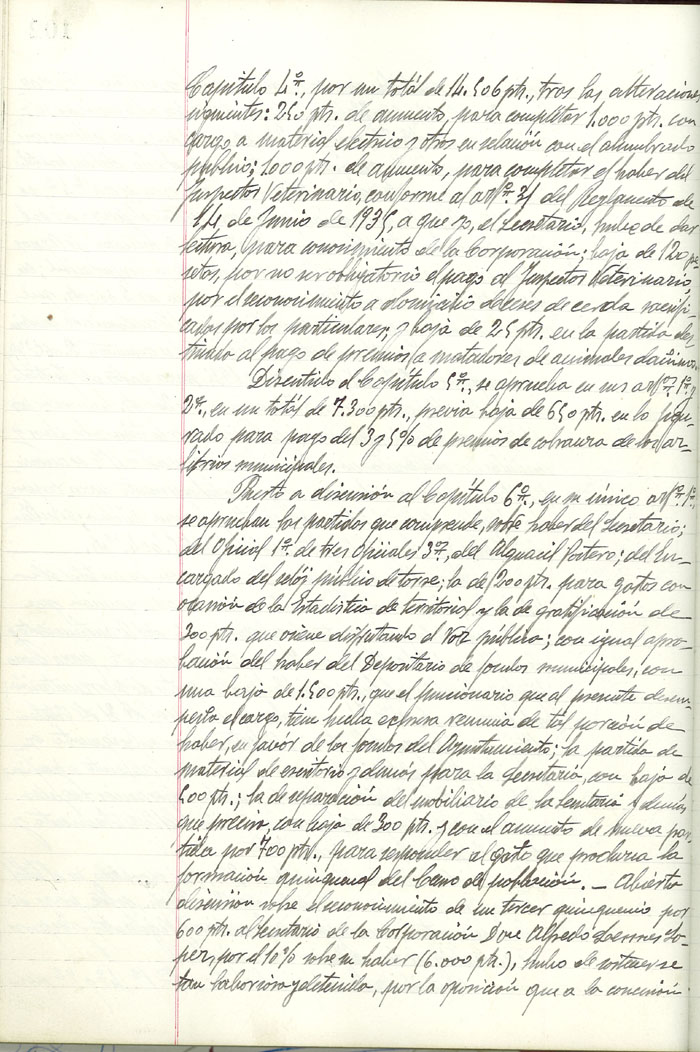 Capítulo 4º, por un totál de 14.506 pts., tras las alteraciones
siguientes: 250 pts. de aumento, para completar 1.000 pts. con
cargo a material electrico y otros en relación con el alumbrado
público; 1.000 pts. de aumento, para completar el haber del
Inspector Veterinario, conforme al artº. 21 del Reglamento de
14, de Junio de 1935, a que yo, el Secretario, hube de dar
lectura, para conocimiento de la Corporación; baja de 120 pe-
setas, por no ser obligatorio el pago al Inspector Veterinario,
por el reconocimiento a domicilio de reses de cerda sacrifi-
cadas por los particulares; y baja de 25 pts. en la partida des-
tinada al pago de premios a matadores de animales dañinos.
Discutido el Capítulo 5º., se aprueba en sus artºs. 1º. y
2º., en un totál de 7.300 pts., previa baja de 650 pts. en lo figu-
rado para pago del 3 y 5% de premios de cobranza de los ar-
bitrios municipales.
Puesto a discusión al Capítulo 6º., en su único artº. 1º.,
se aprueban las partidas que comprende, sobre haber del Secretario;
del Oficial 1º. de tres Oficiales 3os, del Alguacil Portero; del En-
cargado del reloj público de torre; la de 1200 pts. para gastos con
ocasión de la Estadistica de territorial y la de gratificación de
300 pts. que viene disfrutando el Voz pública; con igual apro-
bación del haber del Depositario de fondos municipales, con
una baja de 1.500 pts., que el funcionario que al presente desem-
peña el cargo, tiene hecha expresa renuncia de tal porción de
haber, en favór de los fondos del Ayuntamiento; la partida de
material de escritorio y demás para la Secretaría, con baja de
500 pts.; la de reparación del mobiliario de la Secretaría y demás
que precise, con baja de 300 pts. y con el aumento de nueva par-
tida por 700 pts., para responder al gasto que produzca la
formación quinquenal del Censo de población. — Abierta
discusión sobre el reconocimiento de un tercer quinquenio por
600 pts. al Secretario de la Corporación Don Alfredo Ló-
pez, por el 10% sobre su haber (6.000 pts.), hubo de
tan laboriosa y detenida, por la oposición que a la concesión